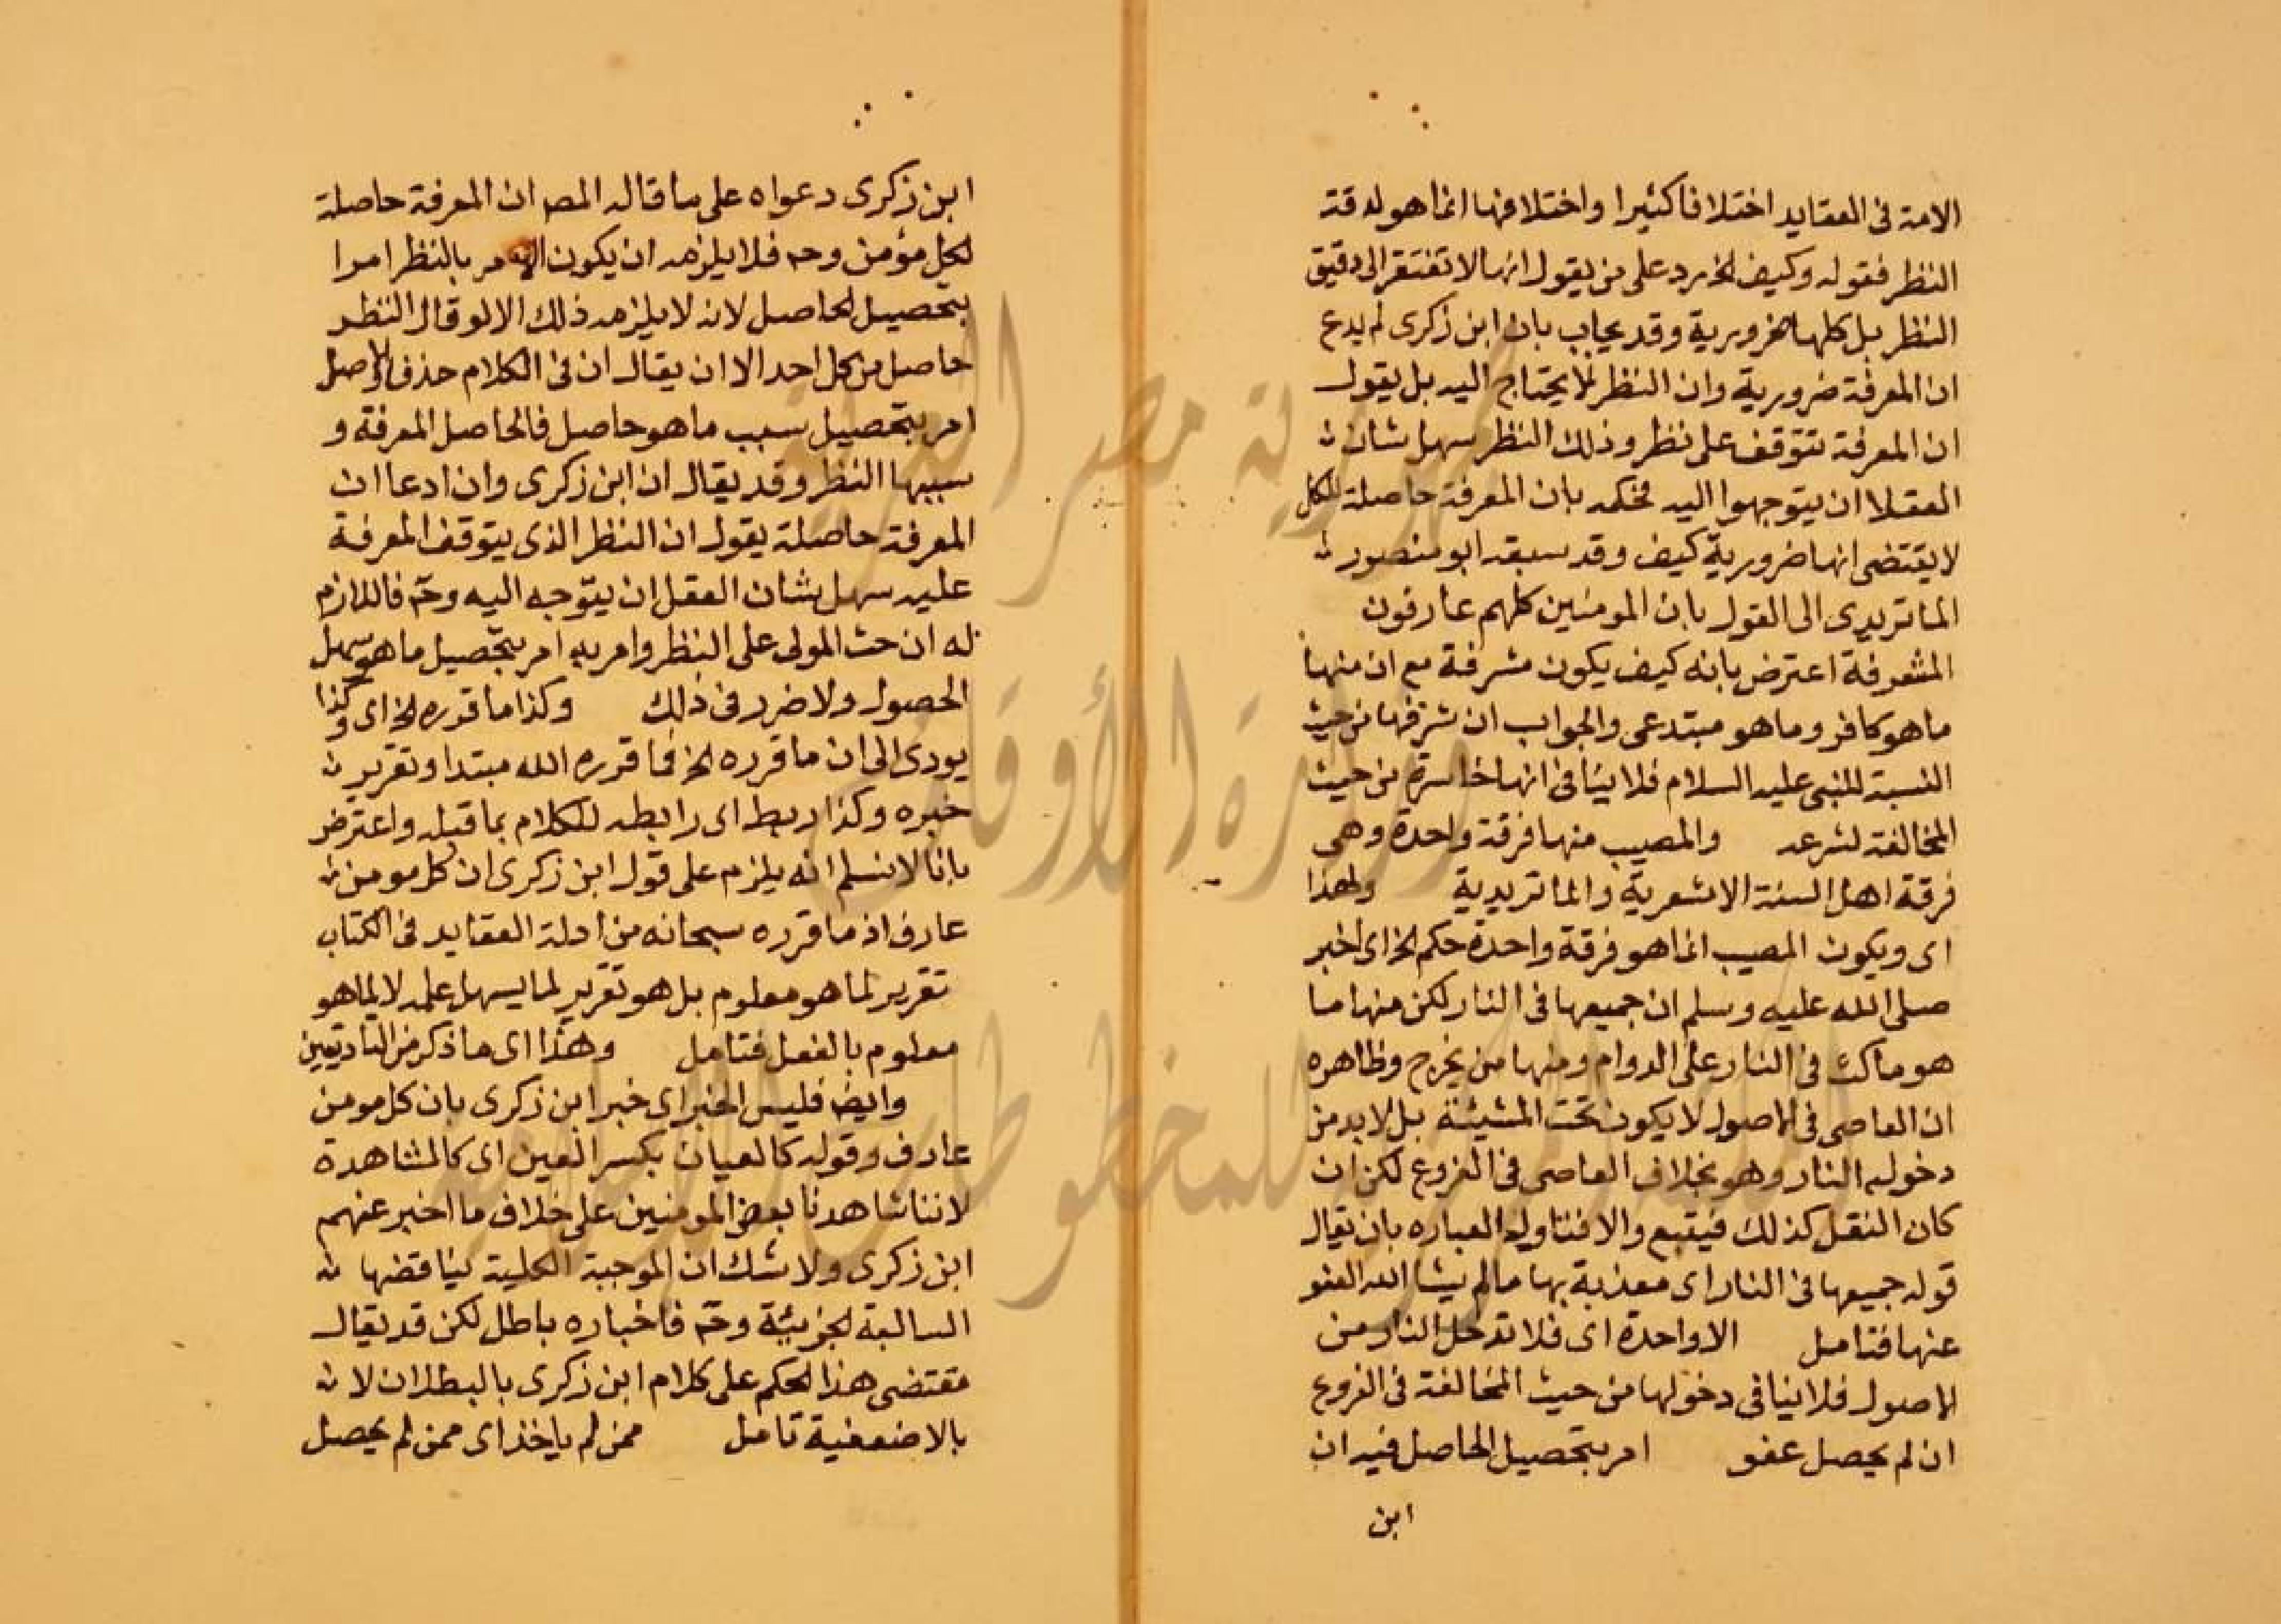 الامة فى العقايد اختلافا كثيرا واختلافها انما هو لدقة
النظر فقوله وكيف الخ يرد على من يقول انها لا تفتقر الى دقيق
النظر بل كلها ضرورية وقد يجاب بان ابن زكرى لم يدع
ان المعرفة ضرورية وان النظر لا يحتاج اليه بل يقول
ان المعرفة تتوقف على نظر وذلك النظر سهل شان
العقلا ان يتوجهوا اليه فحكمه بان المعرفة حاصلة للكل
لا يقتضى انها ضرورية كيف وقد سبقه ابو منصور
الماتريدى الى القول بان المومنين كلهم عارفون
المشرفة اعترض بانه كيف يكون مشرفة مع ان منها
ما هو كافر وما هو مبتدعى والجواب ان شرفها من حيث
النسبة للنبى عليه السلام فلا ينافى انها خاسرة من حيث
المخالفة لشرعه والمصيب منها فرقة واحدة وهى
فرقة اهل السنة الاشعرية والماتريدية ولهذا
اى ويكون المصيب انما هو فرقة واحدة حكم الخ اى اخبر
صلى الله عليه وسلم ان جميعها فى النار لكن منها ما
هو ماكث فى النار على الدوام ومنها من يخرج وظاهره
ان العاصى فى الاصول لا يكون تحت المشيئة بل لا بد من
دخوله النار وهو بخلاف العاصى فى الفروع لكن ان
كان النقل كذلك فيتبع والا فتاويل العباره بان يقال
قوله جميعها فى النار اى معذبة بها ما لم يشا الله العفو
عنها فتامل الا واحدة اى فلا تدخل النار من
الاصول فلا ينافى دخولها من حيث المخالفة فى الفروع
ان لم يحصل عفو امر بتحصيل الحاصل فيه ان
ابن
ابن زكرى دعواه على ما قاله المصـ ان المعرفة حاصلة
لكل مؤمن وحـ فلا يلزمه ان يكون الامر بالنظر امرا
بتحصيل الحاصل لانه لا يلزمه ذلك الا لو قال النظر
حاصل من كل احد الا ان يقال ان فى الكلام حذف الاصل
امر بتحصيل سبب ما هو حاصل فالحاصل المعرفة و
سببها النظر وقد يقال ان ابن زكرى وان ادعا ان
المعرفة حاصلة يقول ان النظر الذى يتوقف المعرفة
عليه سهل بشان العقل ان يتوجه اليه وحـ فاللازم
له ان حث المولى على النظر وامر به امر بتحصيل ما هو سهل
الحصول ولا ضرر فى ذلك وكذا ما قدره الخ اى وكذا
يودى الى ان ما قرره الخ فما قرره الله مبتدا وتقرير
خبره وكذا ربط اى رابطه للكلام بما قبله واعترض
بانا لا نسلم انه يلزم على قول ابن زكرى ان كل مومن
عارف اذ ما قرره سبحانه من ادلة العقايد فى الكتاب
تقرير لما هو معلوم بل هو تقرير لما يسهل علمه لا لما هو
معلوم بالفعل فتامل وهذا اى ما ذكر من التاديتين
وايضـ فليس الخبر اى خبر ابن زكرى بان كل مومن
عارف وقوله كالعيان بكسر العين اى كالمشاهدة
لاننا شاهدنا بعض المومنين على خلاف ما اخبر عنهم
ابن زكرى ولا شك ان الموجبة الكلية يناقضها
السالبة الجزيئة وحـ فاخباره باطل لكن قد يقال
مقتضى هذا الحكم على كلام ابن زكرى بالبطلان لا
بالاضعفية تامل ممن لم ياخذ اى ممن لم يحصل